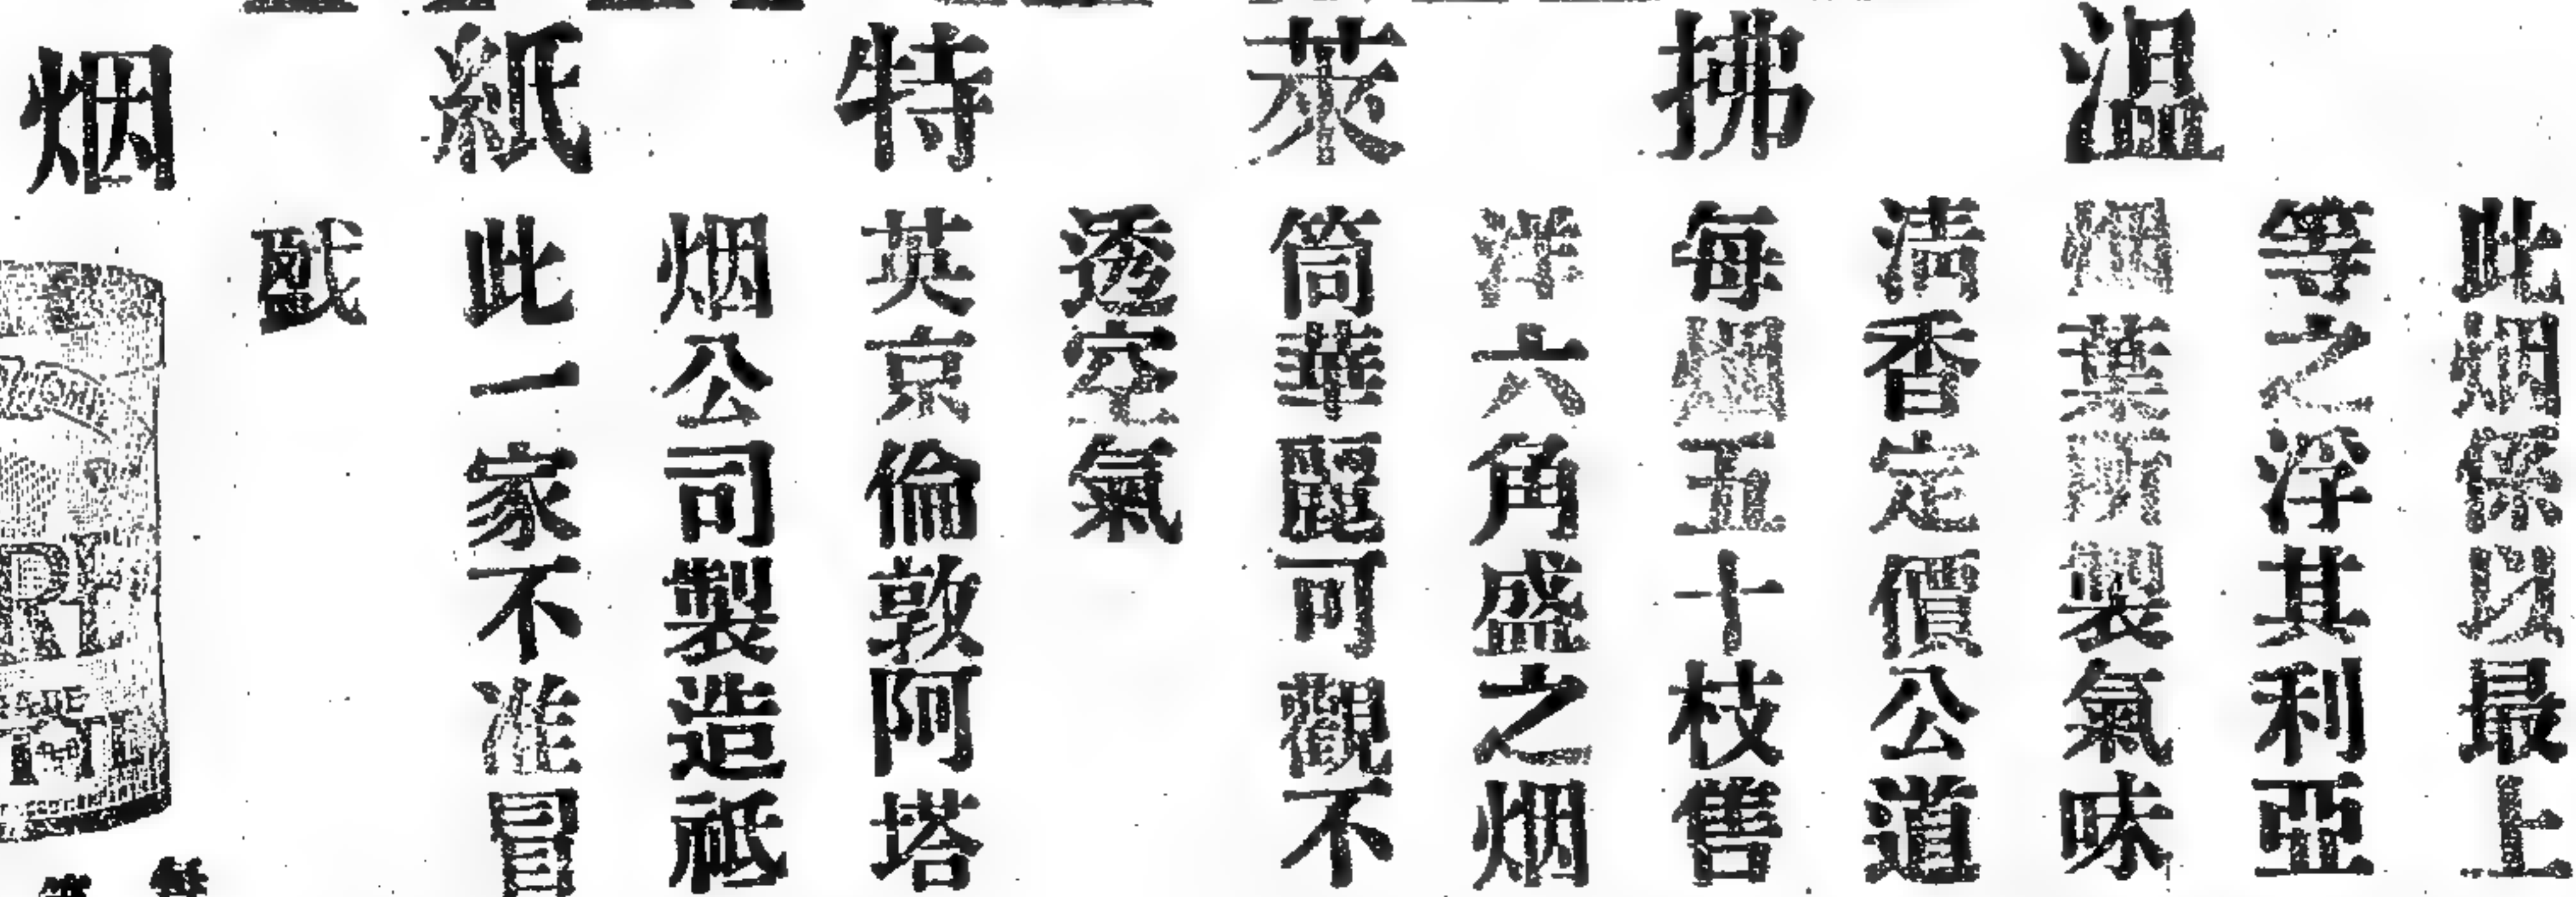 溫拂萊特紙烟
此烟係以最上
等之浮其利亞
烟葉所製氣味
淸香定價公道
每烟五十枝售
洋六角盛之烟
筒華麗可觀不
透空氣
英京倫敦阿塔
烟公司製造祗
此一家不准冒
戤